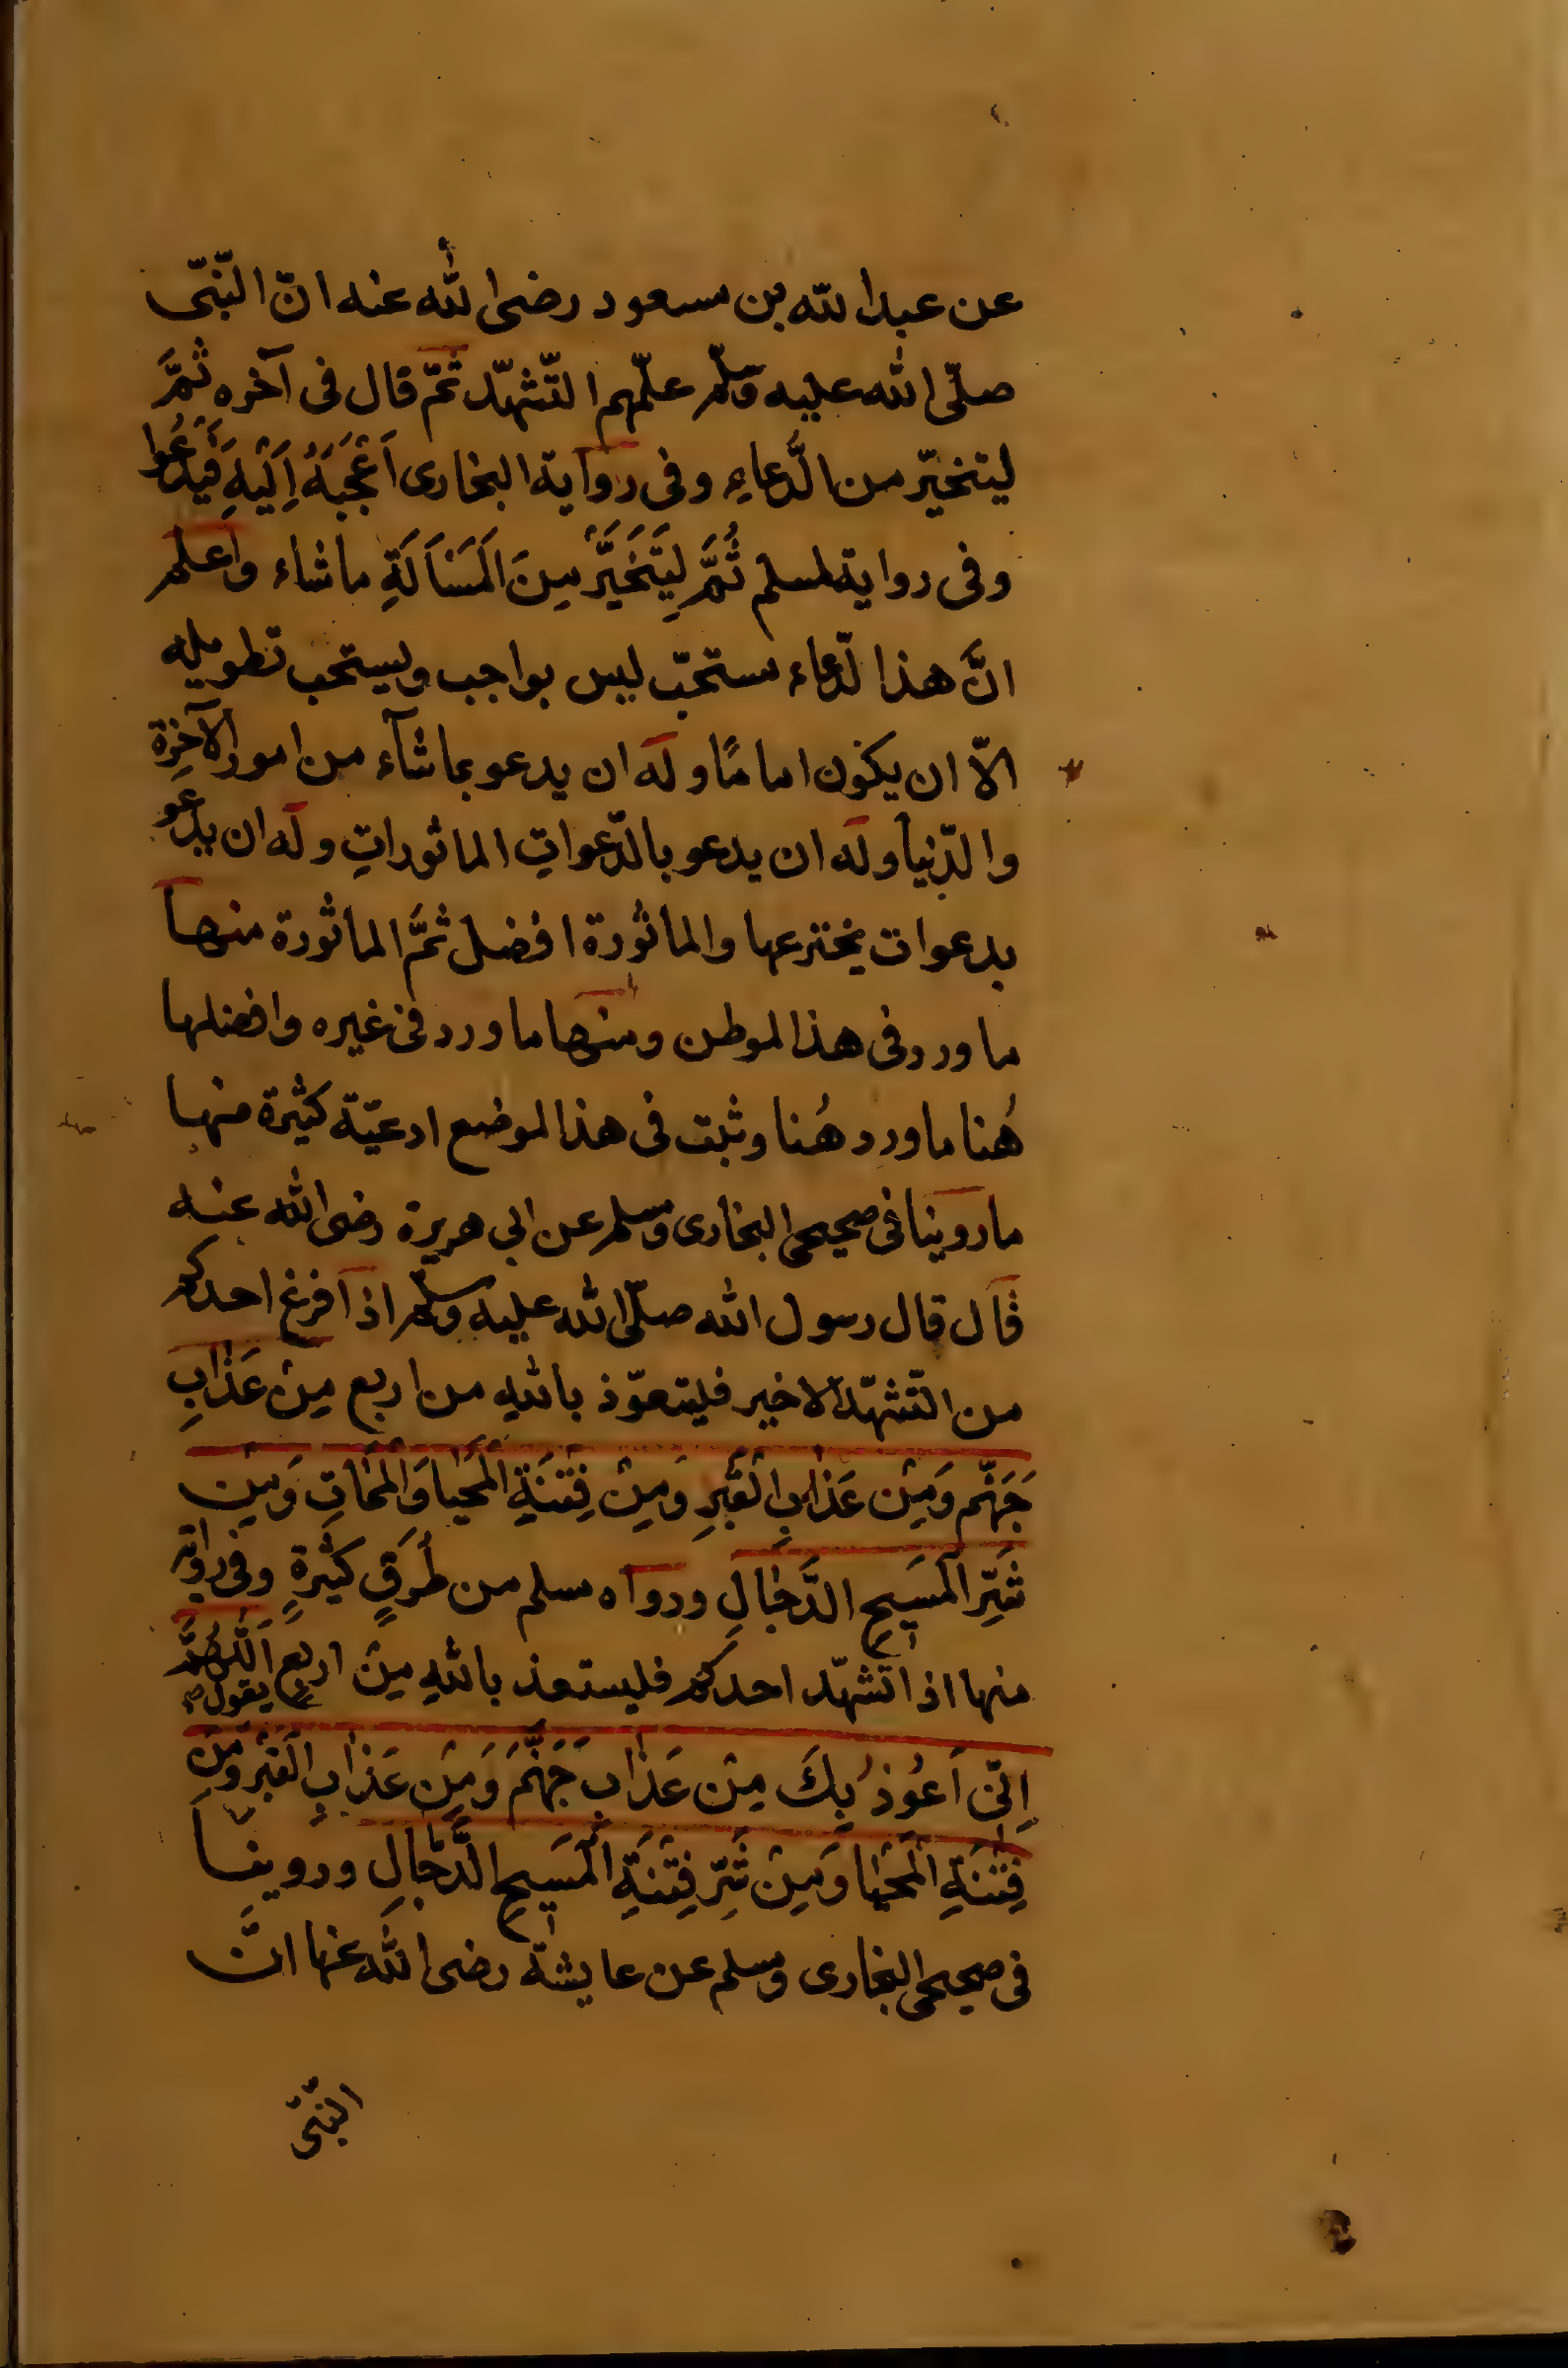 عن عبد الله بن مسعود رضى الله عنه انّ النّبّى
صلّى الله عليه وسلّم علّمهم التّشهّد ثمّ قال فى آخره ثُمَّ
ليتخيّر من الدُّعاءِ وفى رواية البخارى اَعْجَبَهُ اِلَيْهِ فَيَدْعُوا
وفى رواية لمسلم ثُمَّ لِيَتَخَيَّرْ مِنَ الْمَسْاَلَةِ ما شاء واعلم
انَّ هذا لدّعاء مستحبّ ليس بواجب ويستحب تطويله
الاّ ان يكون امامًا وله ان يدعو بما شآء من امور الآخِرة
والدّنيا وله ان يدعو بالدّعواتِ الماثوراتِ وله ان يدعو
بدعوات يخترعها والماثورة افضل ثمَّ الماثورة منها
ما ورد فى هذا لموطن ومنها ما ورد فى غيره وافضلها
هُنا ما ورد هُنا وثبت فى هذا لموضع ادعيّة كثيرة منها
ما روينا فى صحيحى البخارى ومسلم عن ابى هريرة رضى الله عنه
قال قال رسول الله صلّى الله عليه وسلّم اذا فرغ احدكم
من التّشهّد الاخير فليتعوّذ باللهِ من اربع مِنْ عَذٰابِ
جَهَنَّم وَمِنْ عَذٰابِ الْقَبْرِ وَمِنْ فِتْنَةِ الْمَحْيٰا وَالْمَمٰاتِ وَمِن
شَرِّ الْمَسيحِ الدَّجّٰالِ ورواه مسلم من طُرَقٍ كثيرةٍ وفى رواية
منها اذا تشهّد احدكم فليستعذ باللهِ مِنْ اربع يقول اَللّٰهُمَّ
اِنّى اَعُوْذُ بِكَ مِنْ عَذٰابِ جَهَنَّمَ وَمِن عَذٰابِ الْقَبْرِ وَمِنْ
فِتْنَةِ الْمَحْيٰا وَمِنْ شَرِّ فِتْنَةِ الْمَسيحِ الدَّجّٰالِ وروينا
فى صحيحى البخارى ومسلم عن عايشة رضى الله عنها انَّ
النبّى